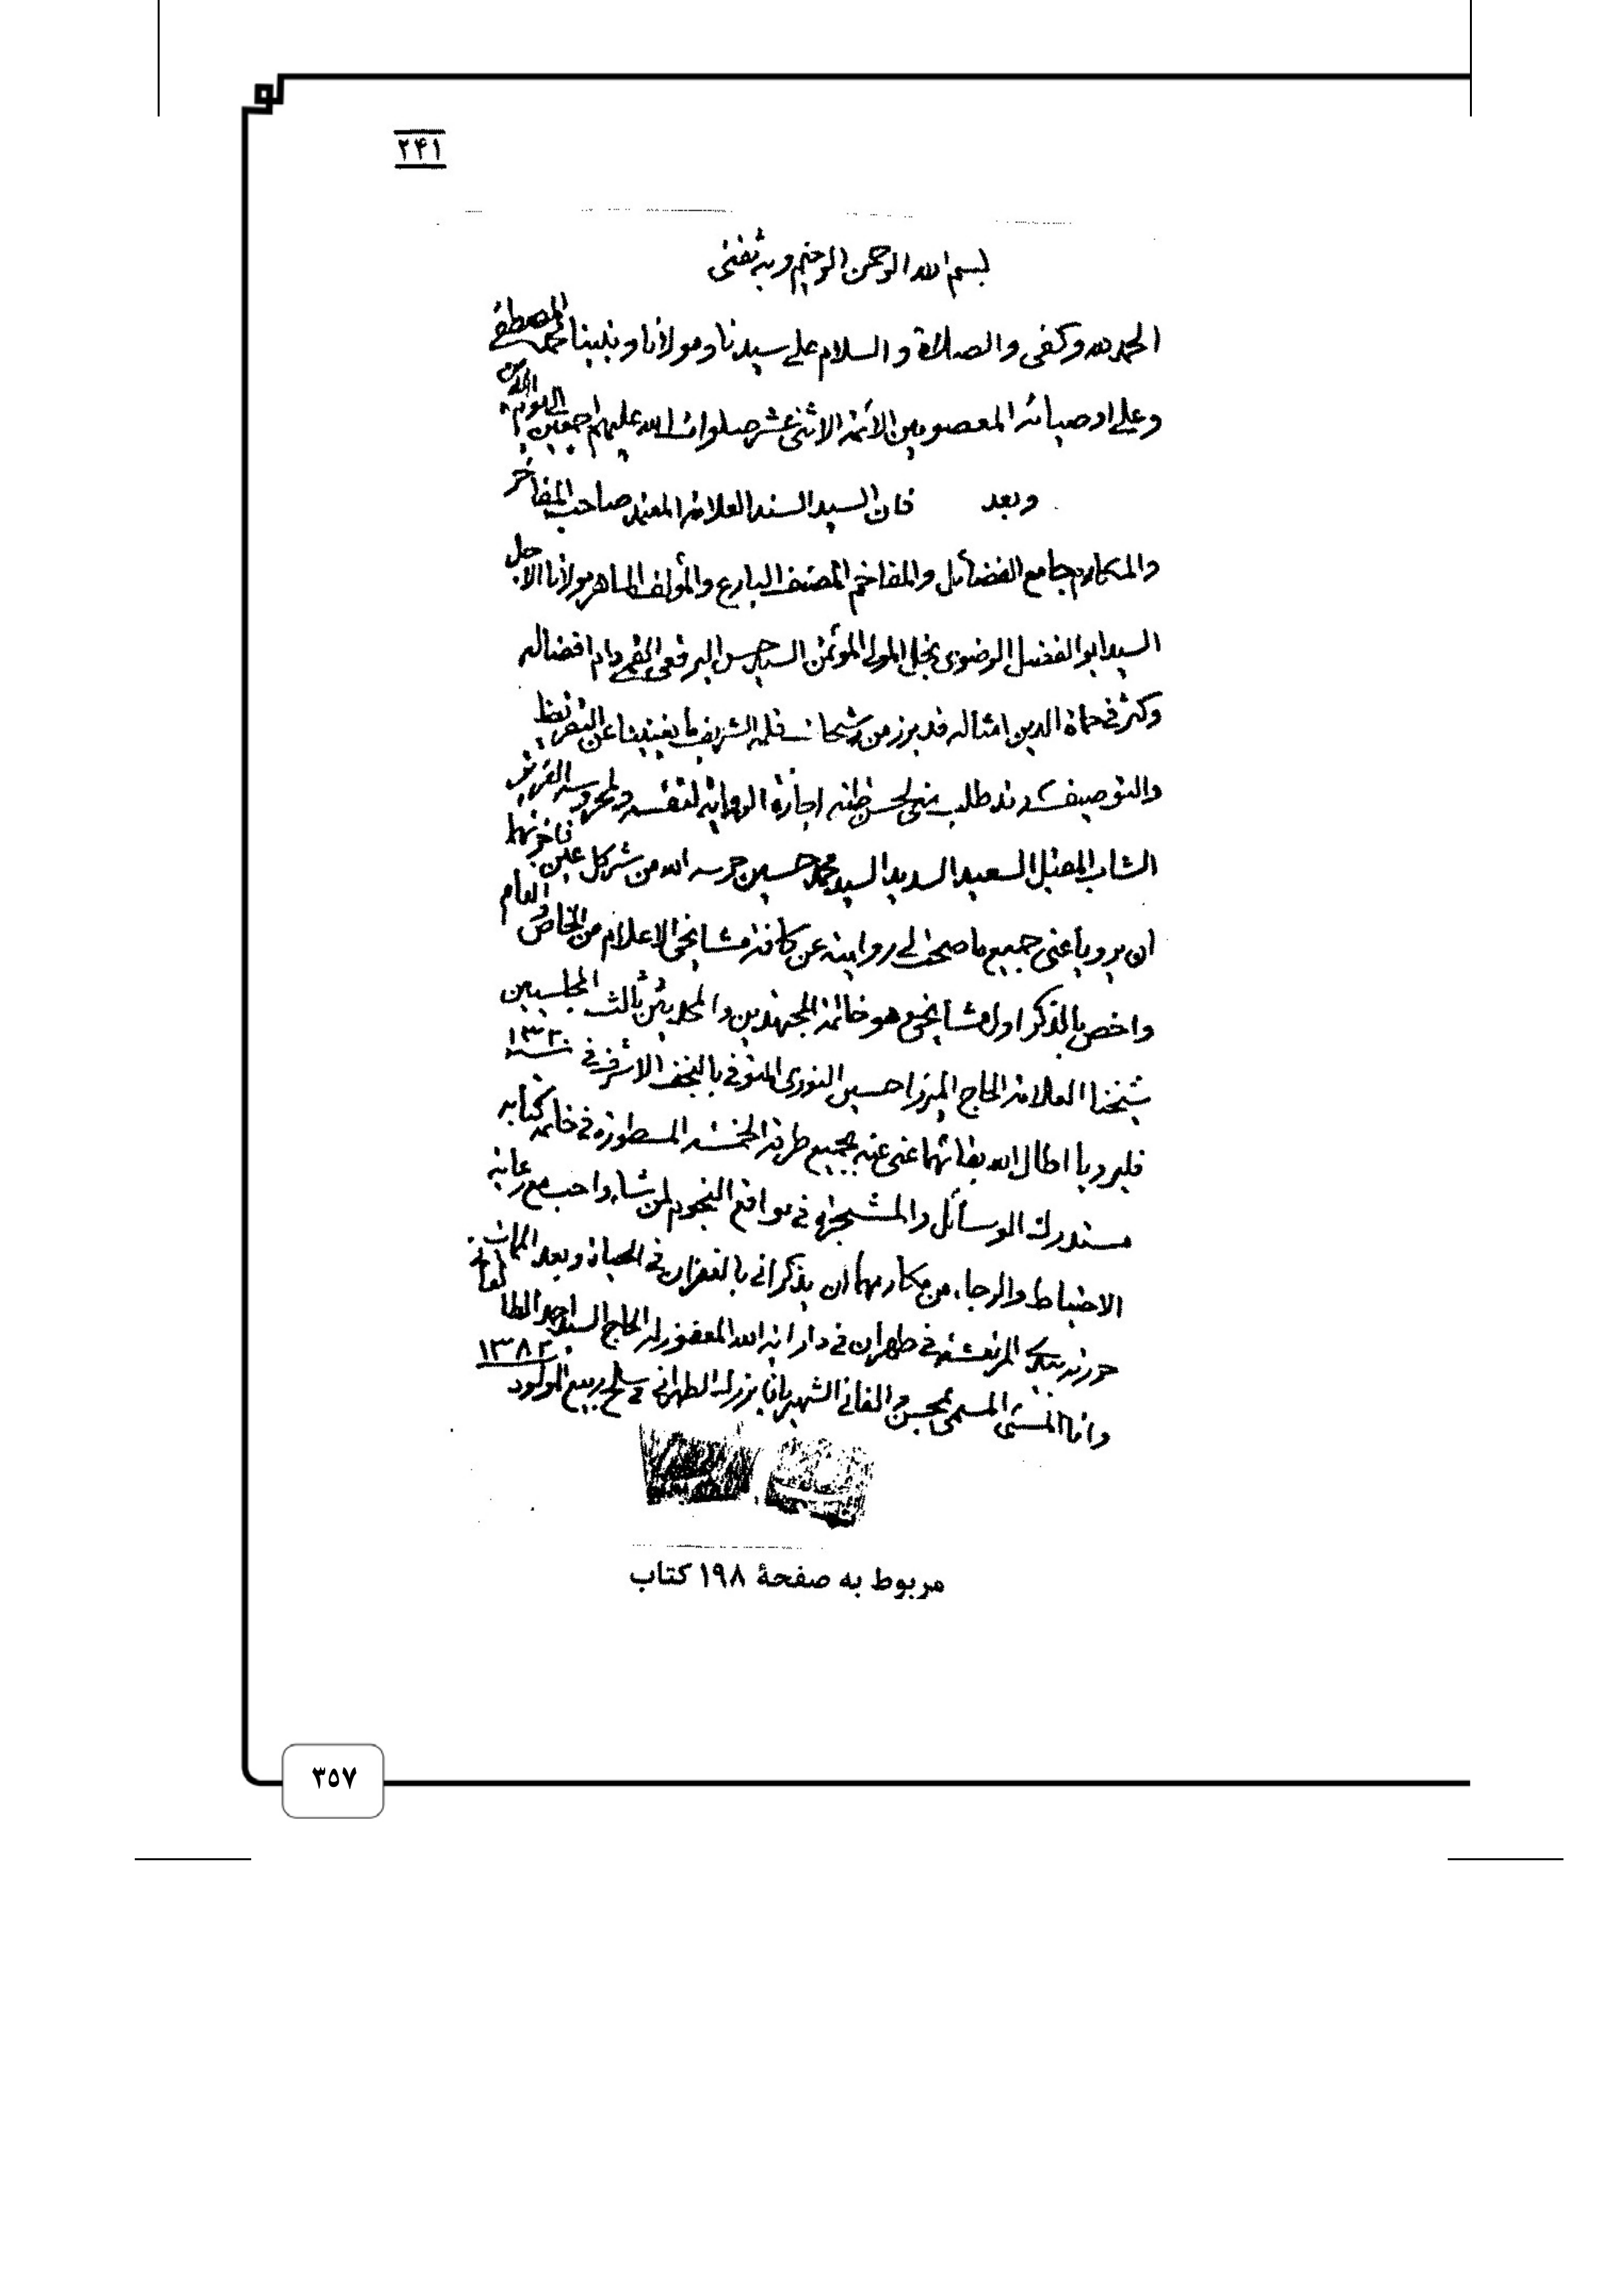 ۲۴۱
بسم الله الرحمن الرحیم وبه ثقتی
الحمد لله وکفی والصلاة والسلام علی سیدنا ومولانا ونبینا محمد المصطفی
وعلی اوصیائه المعصومین الائمة الاثنی عشر صلوات الله علیهم اجمعین الی یوم الدین
وبعد فان السید السند العلامة المعتمد صاحب المفاخر
والمکارم جامع الفضائل والمفاخم المصنف البارع والمؤلف الماهر مولانا الاجل
السید ابو الفضل الرضوی نجل المولی المؤتمن السید حسن البرقعی القمی دام افضاله
وکثر فی حماة الدین امثاله قد برز من رشحات قلمه الشریف ما یغنینا عن التقریظ
والتوصیف وقد طلب منی لحسن ظنه اجازة الروایة لنفسه ولمحروسه العزیز
الشاب المقبل السعید السدید السید محمد حسین حرسه الله من شر کل عین فاجزتهما
ان یرویا عنی جمیع ما صحت لی روایته عن کافة مشایخی الاعلام من الخاص والعام
واخص بالذکر اول مشایخی وهو خاتمة المجتهدین والمحدثین ثالث المجلسیین
شیخنا العلامة الحاج المیرزا حسین النوری المتوفی بالنجف الاشرف فی ۱۳۲۰
فلیرویا اطال الله بقائهما عنی عنه بجمیع طرقه الخمسة المسطورة فی خاتمة کتابه
مستدرک الوسائل والمشجرة فی مواقع النجوم لمن شاء واحب مع رعایة
الاحتیاط والرجاء من مکارمهما ان یذکرانی بالغفران فی الحیاة وبعد الممات
حررته بیدی المرتعشة فی طهران فی دار ایة الله المغفور له الحاج السید احمد الطالقانی
وانا المسئی المسمی بمحسن والفانی الشهیر باقا بزرک الطهرانی فی سلخ ربیع المولود ۱۳۸۲
مربوط به صفحهٔ ۱۹۸ کتاب
۳۵۷